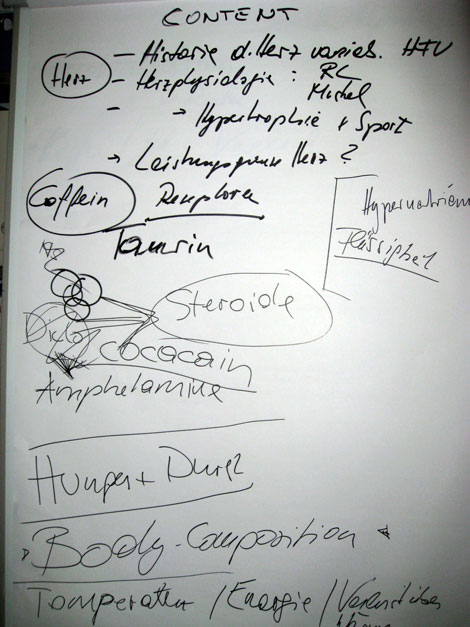 CONTENT
Herz
- Historie d. Herz variab. HFV
- Herzphysiologie : RC
Muskel
- → Hypertrophie + Sport
→ Leistungsgrenze Herz ?
Coffein
Rezeptoren
Taurin
Hypernatriäm
Flüssigkeit
Steroide
COCACAIN
Amphetamine
Hunger + Durst
Body-Composition
Temperatur / Energie /